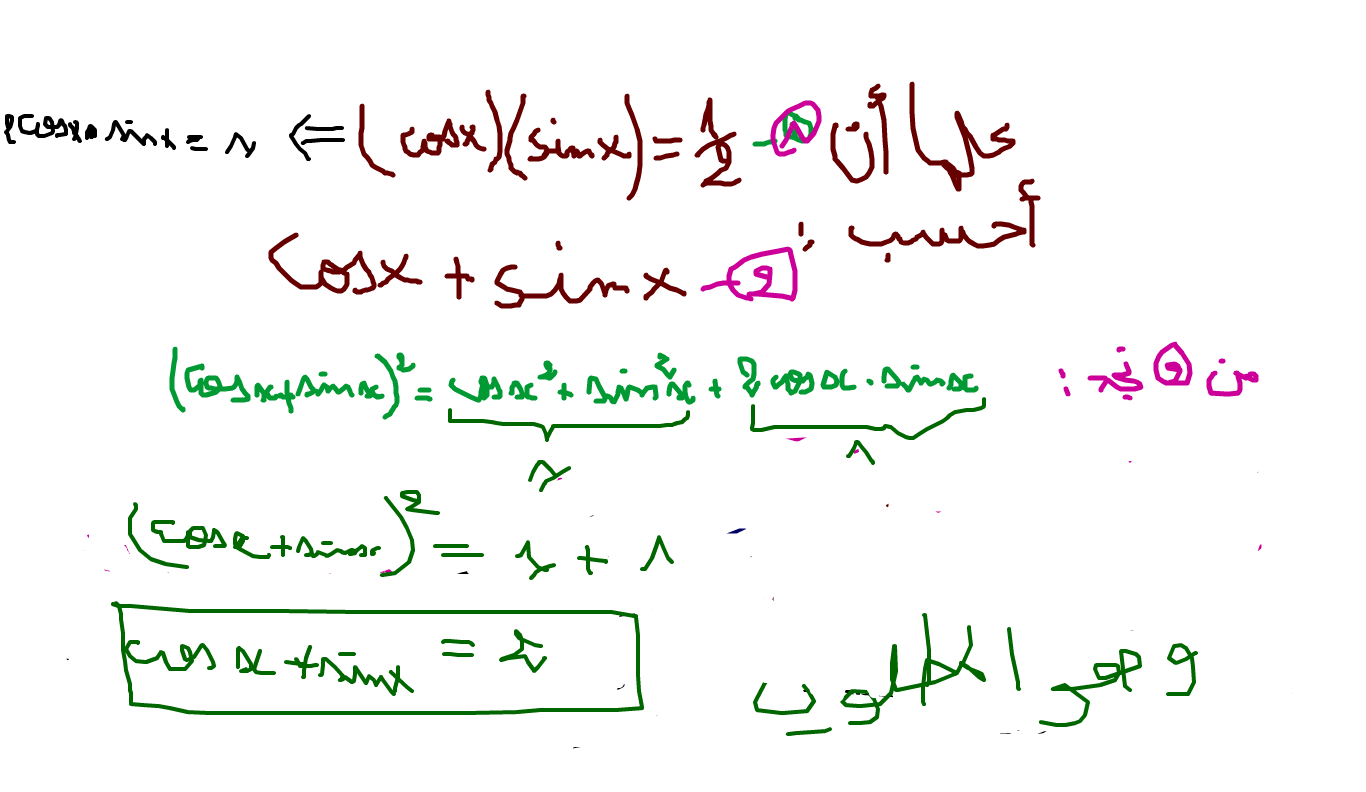 علما أن (cosx)(sinx) = 1/2 ① ⇐ 2cosx • sinx = 1
أحسب :
cosx + sinx ②
من ② نجد :
(cosx+sinx)² = cosx² + sin²x + 2cosx . sinx
1 1
(cosx+sinx)² = 1 + 1
cosx+sinx = 2
و هو المطلوب